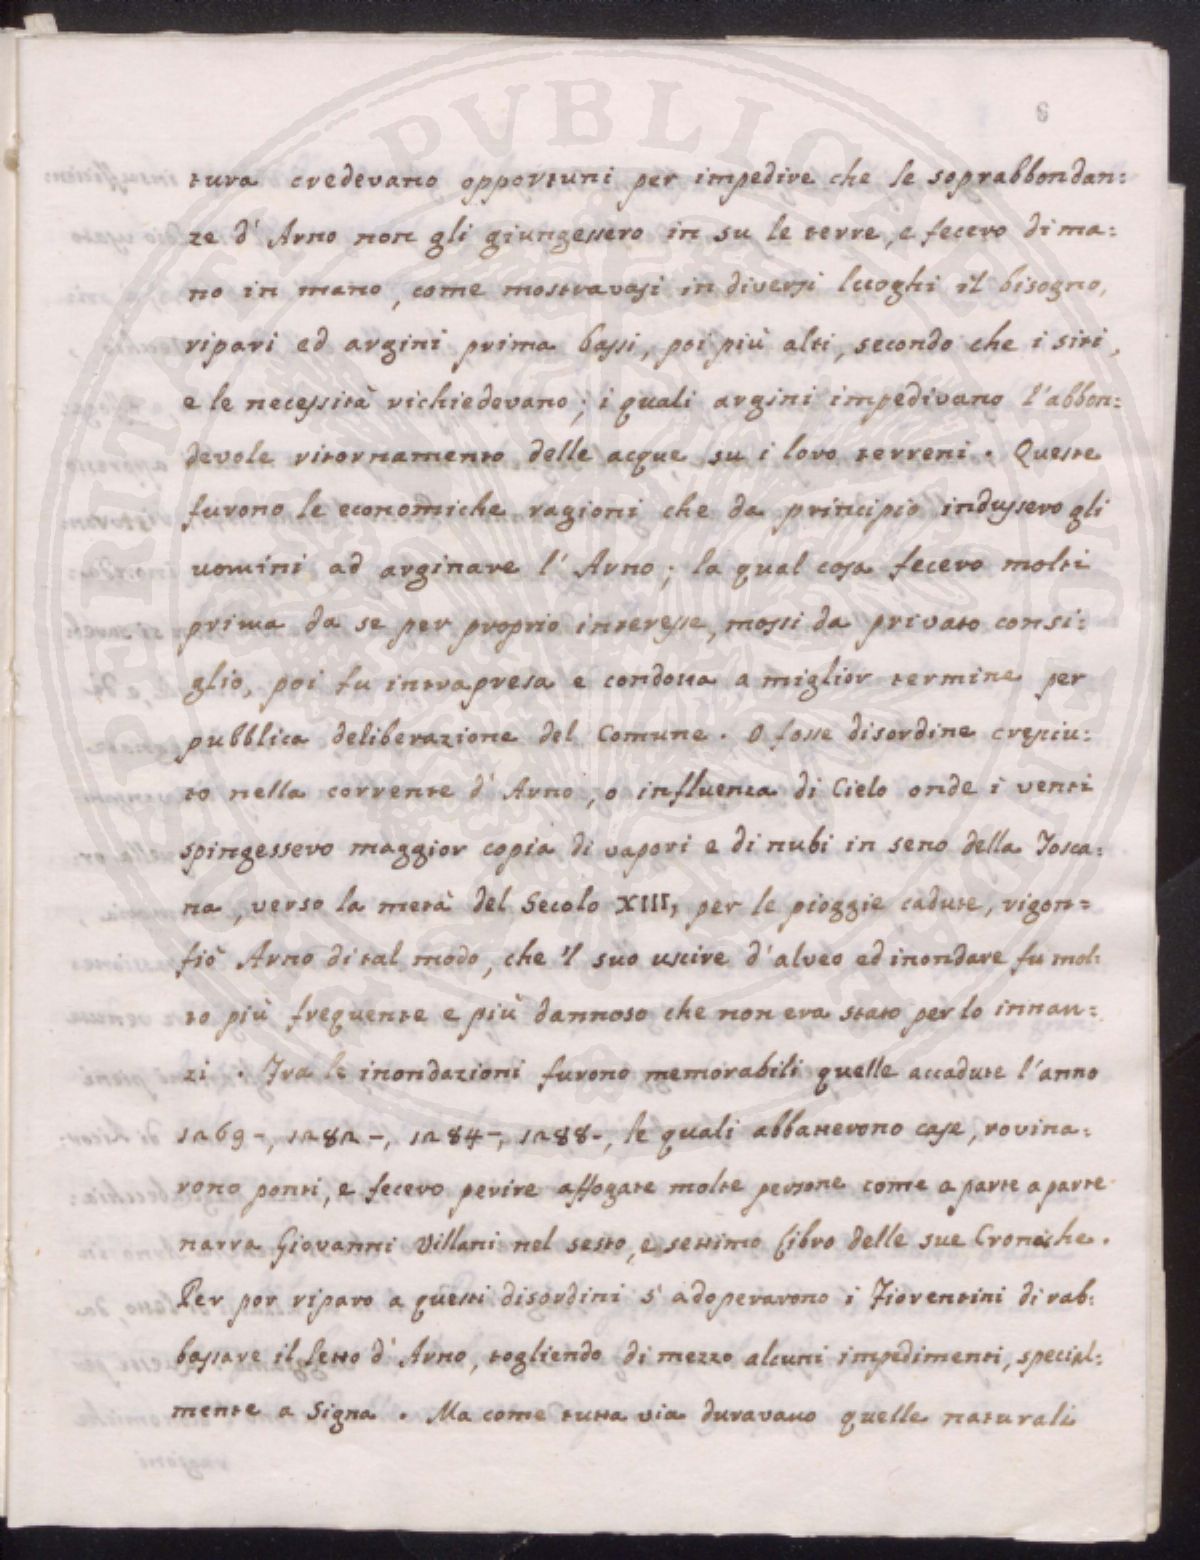 6
tura credevano opportuni per impedire che le soprabbondan:
ze d' Arno non gli giungessero in su le terre, e fecero di ma:
no in mano, come mostravasi in diversi luoghi il bisogno,
ripari ed argini prima bassi, poi più alti, secondo che i siti,
e le necessità richiedevano; i quali argini impedivano l'abbon:
devole ritornamento delle acque su i loro terreni. Queste
furono le economiche ragioni che da principio indussero gli
uomini ad arginare l' Arno; la qual cosa fecero molti
prima da se per proprio interesse, mossi da privato consi:
glio, poi fu intrapresa e condotta a miglior termine per
pubblica deliberazione del Comune. O fosse disordine cresciu:
to nella corrente d' Arno, o influenza di Cielo onde i venti
spingessero maggior copia di vapori e di nubi in seno della Tosca:
na, verso la metà del Secolo XIII, per le pioggie cadute, rigon=
fiò Arno di tal modo, che 'l suo uscire d'alveo ed inondare fu mol:
to più frequente e più dannoso che non era stato per lo innan:
zi. Tra le inondazioni furono memorabili quelle accadute l'anno
1269-, 1282-, 1284-, 1288-, le quali abbatterono case, rovina:
rono ponti, e fecero perire affogate molte persone come a parte a parte
narra Giovanni Villani nel sesto, e settimo libro delle sue Croniche.
Per por riparo a questi disordini s' adoperarono i Fiorentini di rab:
bassare il letto d' Arno, togliendo di mezzo alcuni impedimenti, special:
mente a Signa. Ma come tutta via duravano quelle naturali